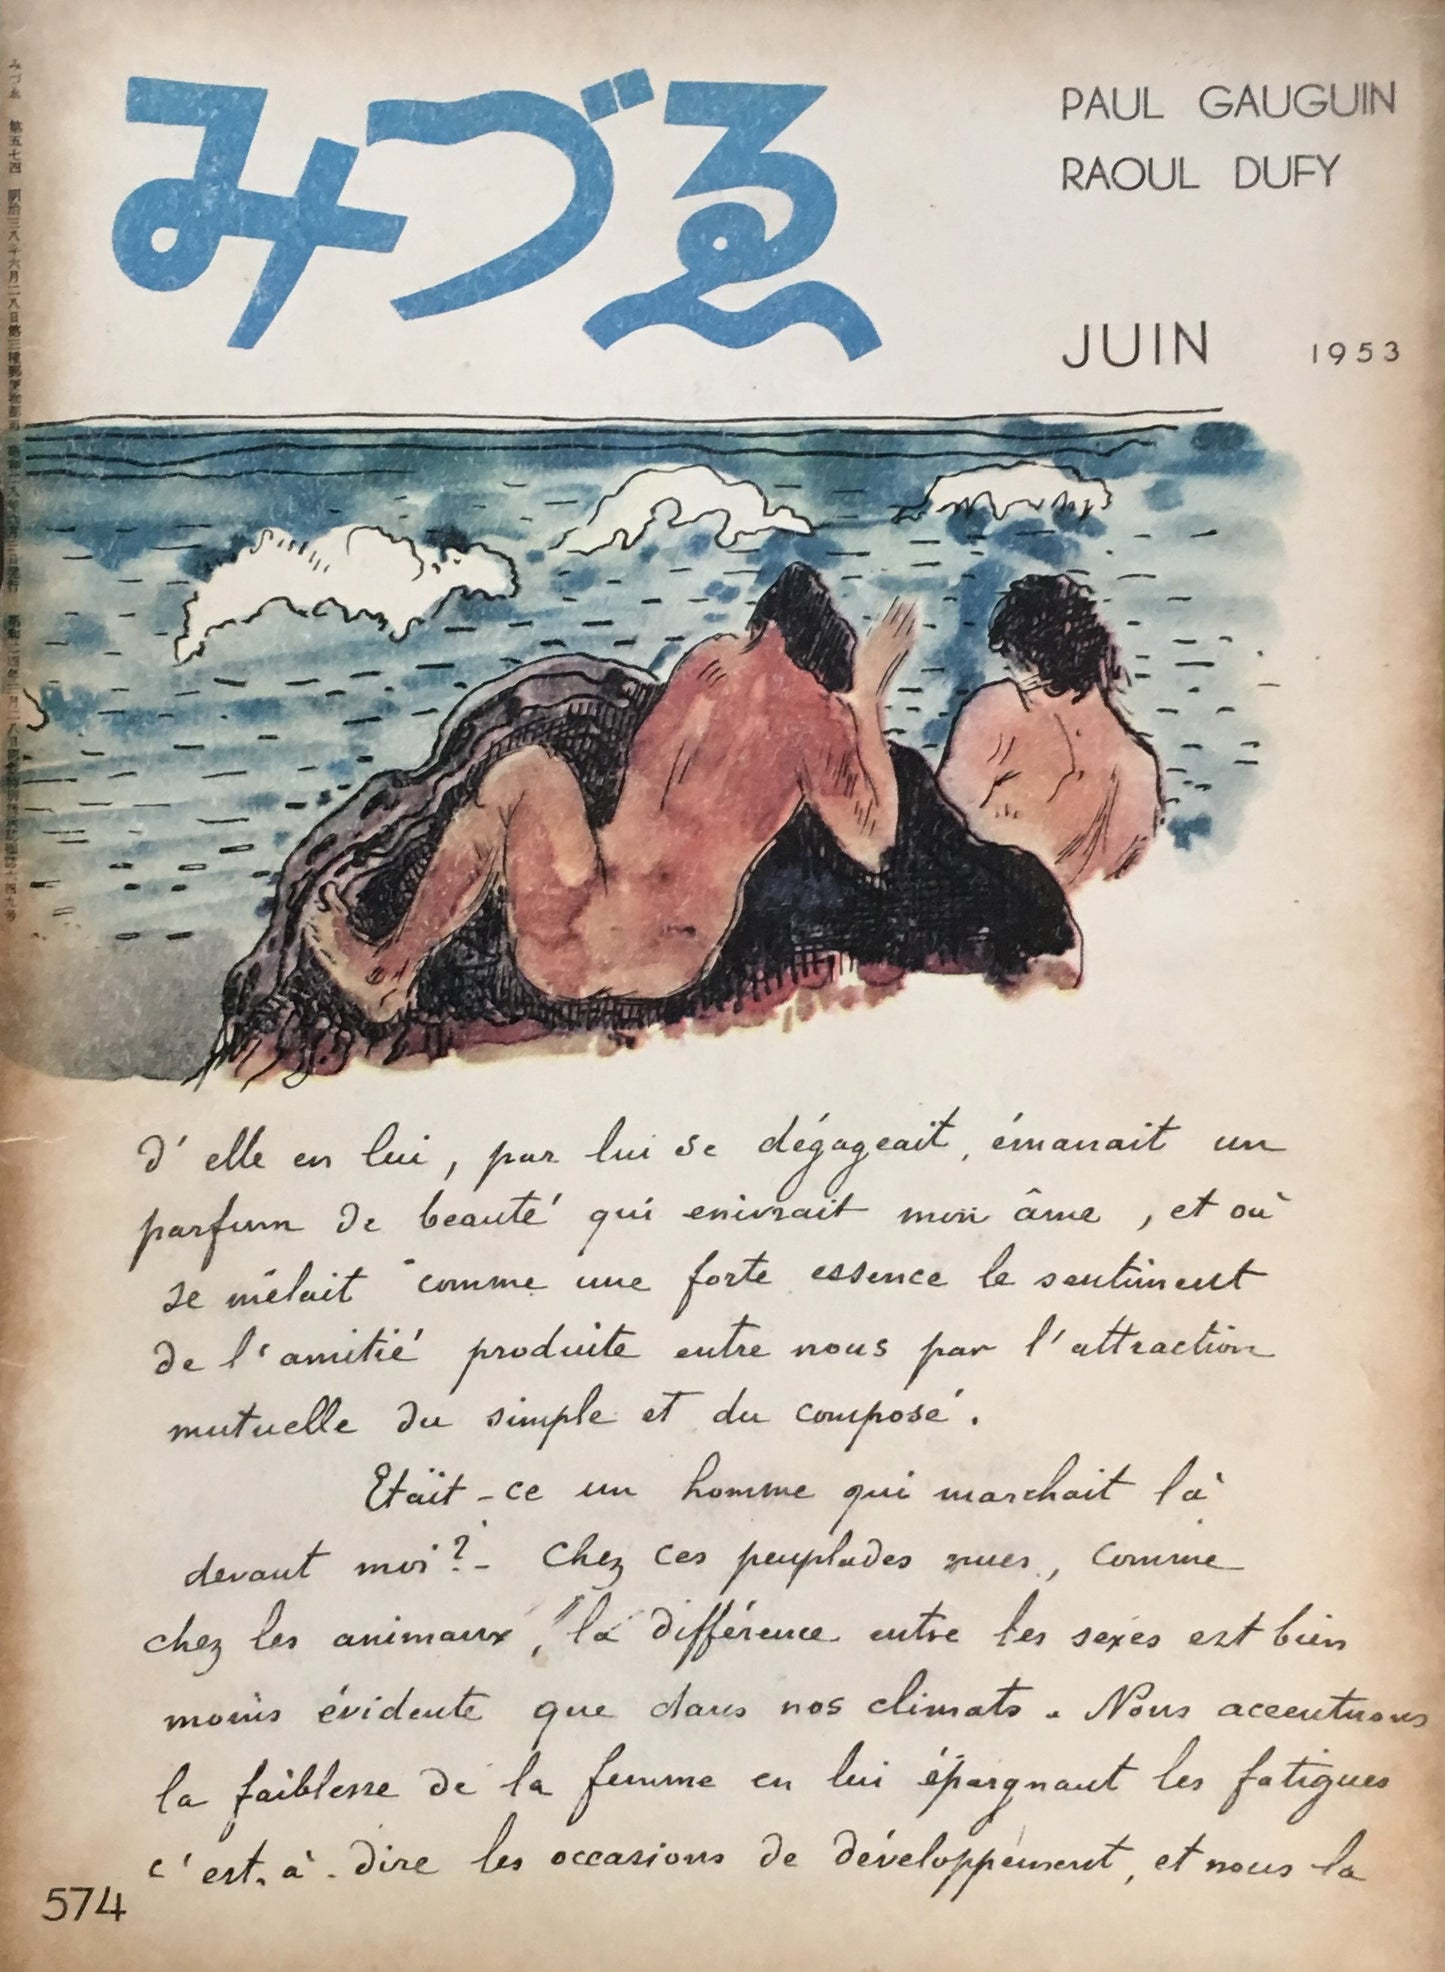 みづゑ
PAUL GAUGUIN
RAOUL DUFY
JUIN 1953
みづゑ 第五七四 明治三八年六月二八日第三種郵便物認可
d'elle en lui, par lui se dégageait, émanait un
parfum de beauté qui enivrait mon âme, et où
se mêlait comme une forte essence le sentiment
de l'amitié produite entre nous par l'attraction
mutuelle du simple et du composé.
Etäit-ce un homme qui marchait là
devant moi?- Chez ces peuplades nues, comme
chez les animaux, la différence entre les sexes est bien
moins évidente que dans nos climats. Nous accentuons
la faiblesse de la femme en lui épargnant les fatigues
c'est-à-dire les occasions de développement, et nous la
574